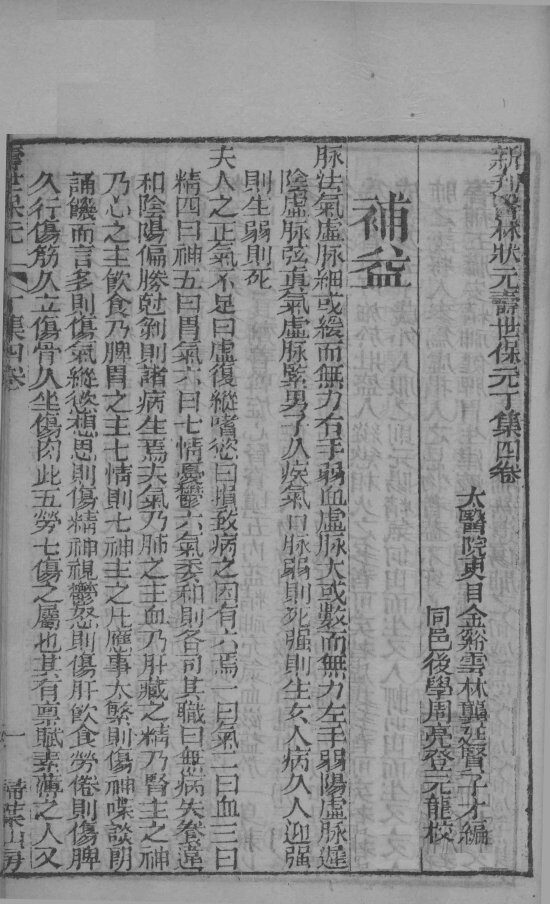 新刋醫林狀元壽世保元丁集四卷
太醫院吏目金谿雲林龔廷賢子才編
同邑後學周亮登元龍校
補益
脉法氣虛脉細或緩而無力右手弱血虛脉大或數而無力左手弱陽虛脉遲
陰虛脉弦真氣虛脉緊男子久疾氣口脉弱則死强則生女人病久人迎强
則生弱則死
夫人之正氣不足曰虛復縱嗜慾曰損致病之因有六焉一曰氣二曰血三曰
精四曰神五曰胃氣六曰七情憂鬱六氣委和則各司其職曰無病失養違
和陰陽偏勝尅剝則諸病生焉夫氣乃肺之主血乃肝藏之精乃腎主之神
乃心之主飲食乃脾胃之主七情則七神主之凡應事太緊則傷神喋談朗
誦饑而言多則傷氣縱慾想思則傷精神視鬱怒則傷肝飲食勞倦則傷脾
久行傷筋久立傷骨久坐傷肉此五勞七傷之屬也其有禀賦素薄之人又
壽世保元 丁集四卷 一